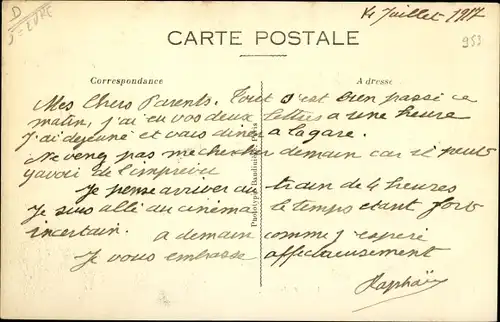 D
J=EURE
4 Juillet 1917
953
CARTE POSTALE
Correspondance
Adresse
Mes Chers Parents. Tout s'est bien passé ce
matin, j'ai eu vos deux lettres a une heure
J'ai dejeuné et vais diner a la gare.
Ne venez pas me chercher demain car il peut
y avoir de l'imprevu
Je pense arriver au train de 4 heures
Je suis allé au cinéma le temps etant fort
incertain. a demain comme j'espere
Je vous embrasse affectueusement
Raphaël
Phototypie Baudinière, Paris